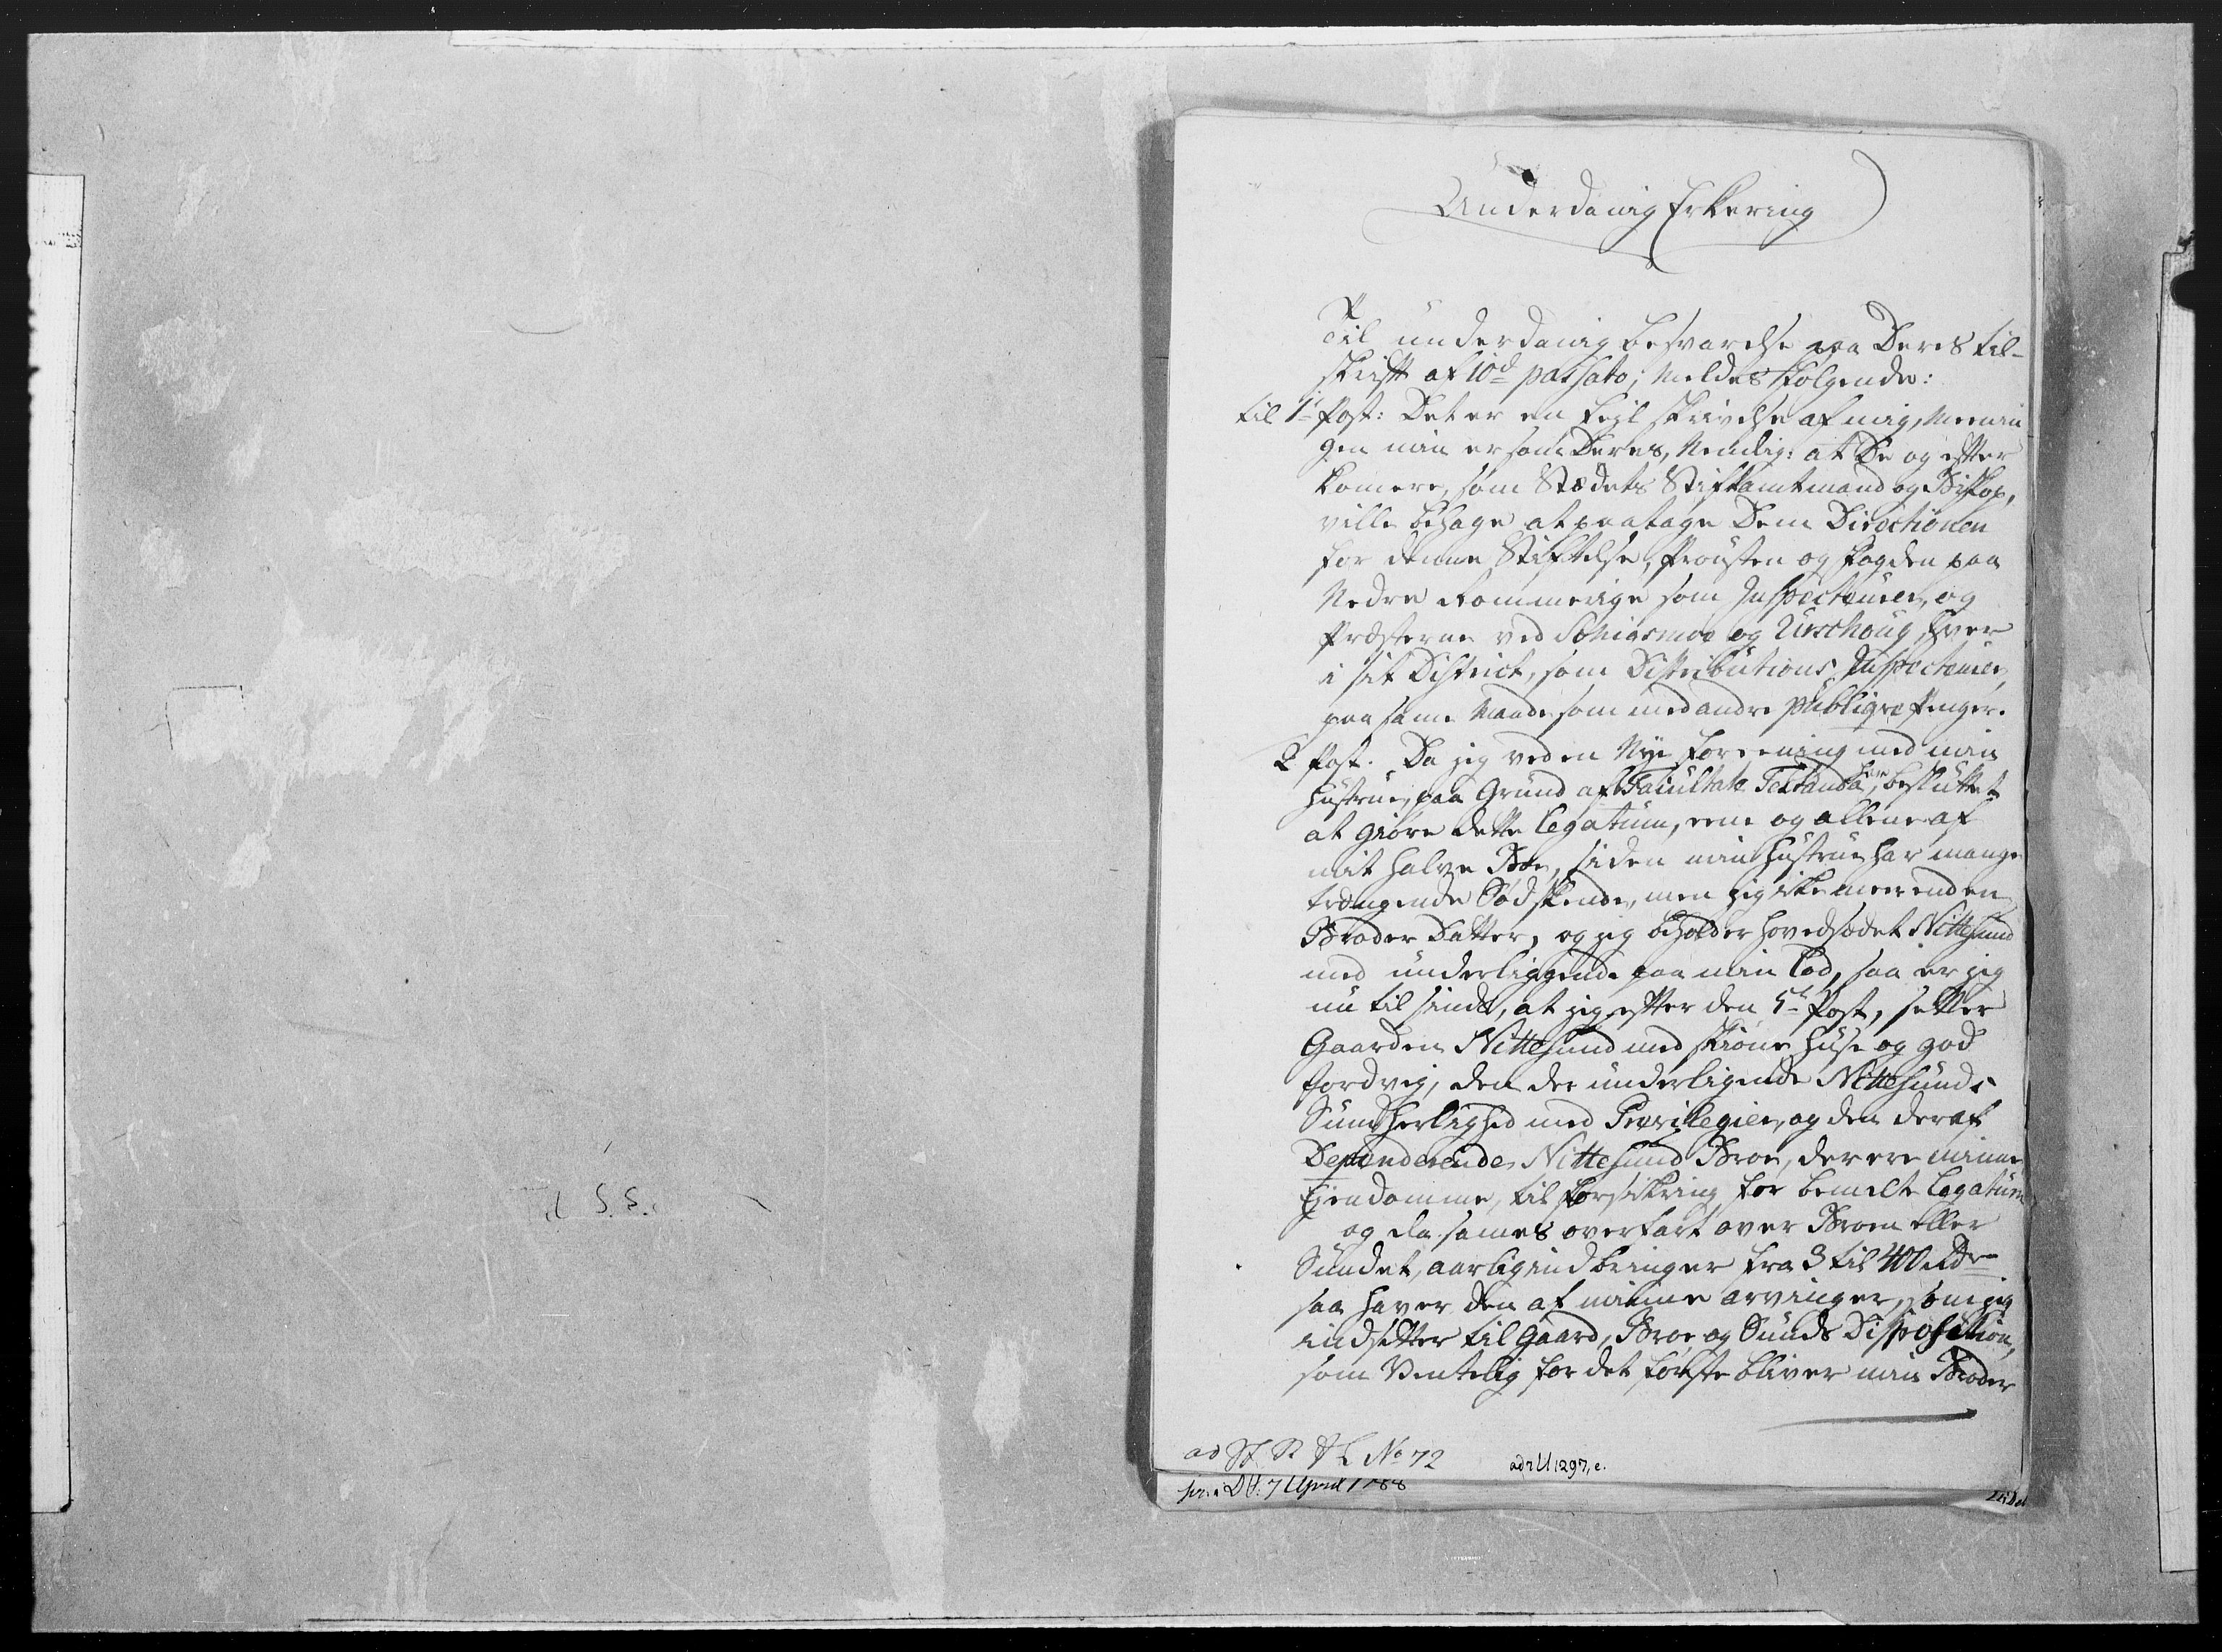 Underdanig Erklering
Til underdanig besvarelse paa Deres til-
skrift af 10d passato; meldes følgende:
til 1te Post: Det er en feyl skrivelse af mig, meenin
gen min er som Deres, Nemlig: at De og efter
komere, som Stædets Stiftamtmand og Biskop,
ville behage at paatage Dem Directionen
for denne Stiftelse, Prousten og Fogden paa
Nedre Rommerige som Inspecteurer, og
Præsterne ved Søhiasmoe og Urschoug, hver
i sit District, som Distributions Inspecteurer,
paa same Maade som med andre publiqve Penger.
2 Post. Da jeg ved en Nye foreening med min
Hustrue, paa Grund af Facultate Testanda har, besluttet
at giøre dette Legatum, eene og allene af
mit halve Boe, siden min Hustrue har mange
trængende Sødskende, men jeg ikke meer end en
Broder Datter, og jeg beholder hovedsædet Nittesund
med underliggende paa min Lod, saa er jeg
nu til sinds, at jeg efter den 5te Post, setter
Gaarden Nittesund med skiøne Huse og god
Jordvey, den der underligende Nittesunds
Sund herlighed med Previlegier, og den deraf
Dependerende Nittesund Broe, der ere minne
Ejendomme, til forsikring for bemelte Legatum
og da sames overfart over Broen eller
Sundet, aarlig indbringer fra 3 til 400 rdr
saa haver den af minne arvinger, som jeg
indsetter til Gaard, Broe og Sunds Disposition,
som Ventelig for det første bliver min Broder
ad No 72
ad 2 U 1297, e.
7 April 1788